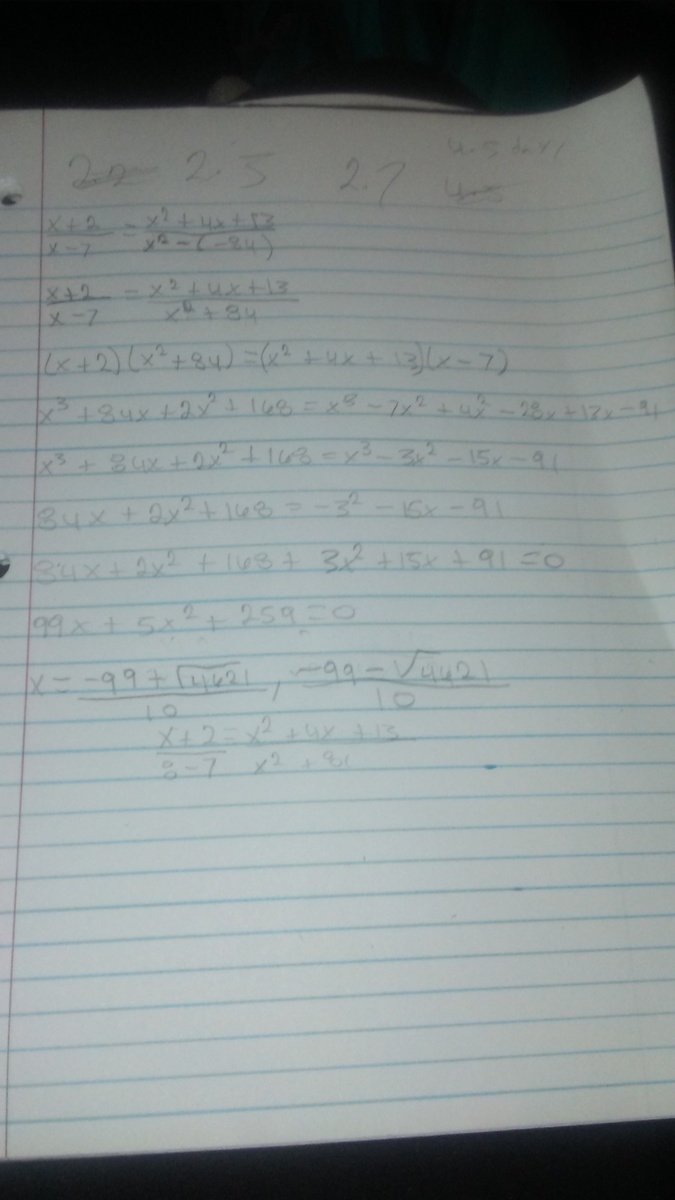 2.5 2.7
x+2/x-7 = x²+4x+13/x²-(-84)
x+2/x-7 = x²+4x+13/x²+84
(x+2)(x²+84)=(x²+4x+13)(x-7)
x³+84x+2x²+168=x³-7x²+4x²-28x+13x-91
x³+84x+2x²+168=x³-3x²-15x-91
84x+2x²+168=-3²-15x-91
84x+2x²+168+3x²+15x+91=0
99x+5x²+259=0
x= -99+√4621/10, -99-√4421/10
x+2/8-7 = x²+4x+13/x²+81